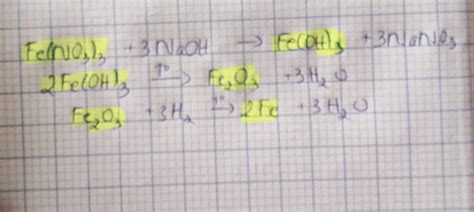 Fe(NO₃)₃ + 3NaOH → Fe(OH)₃ + 3NaNO₃
2Fe(OH)₃ t°→ Fe₂O₃ + 3H₂O
Fe₂O₃ + 3H₂ t°→ 2Fe + 3H₂O